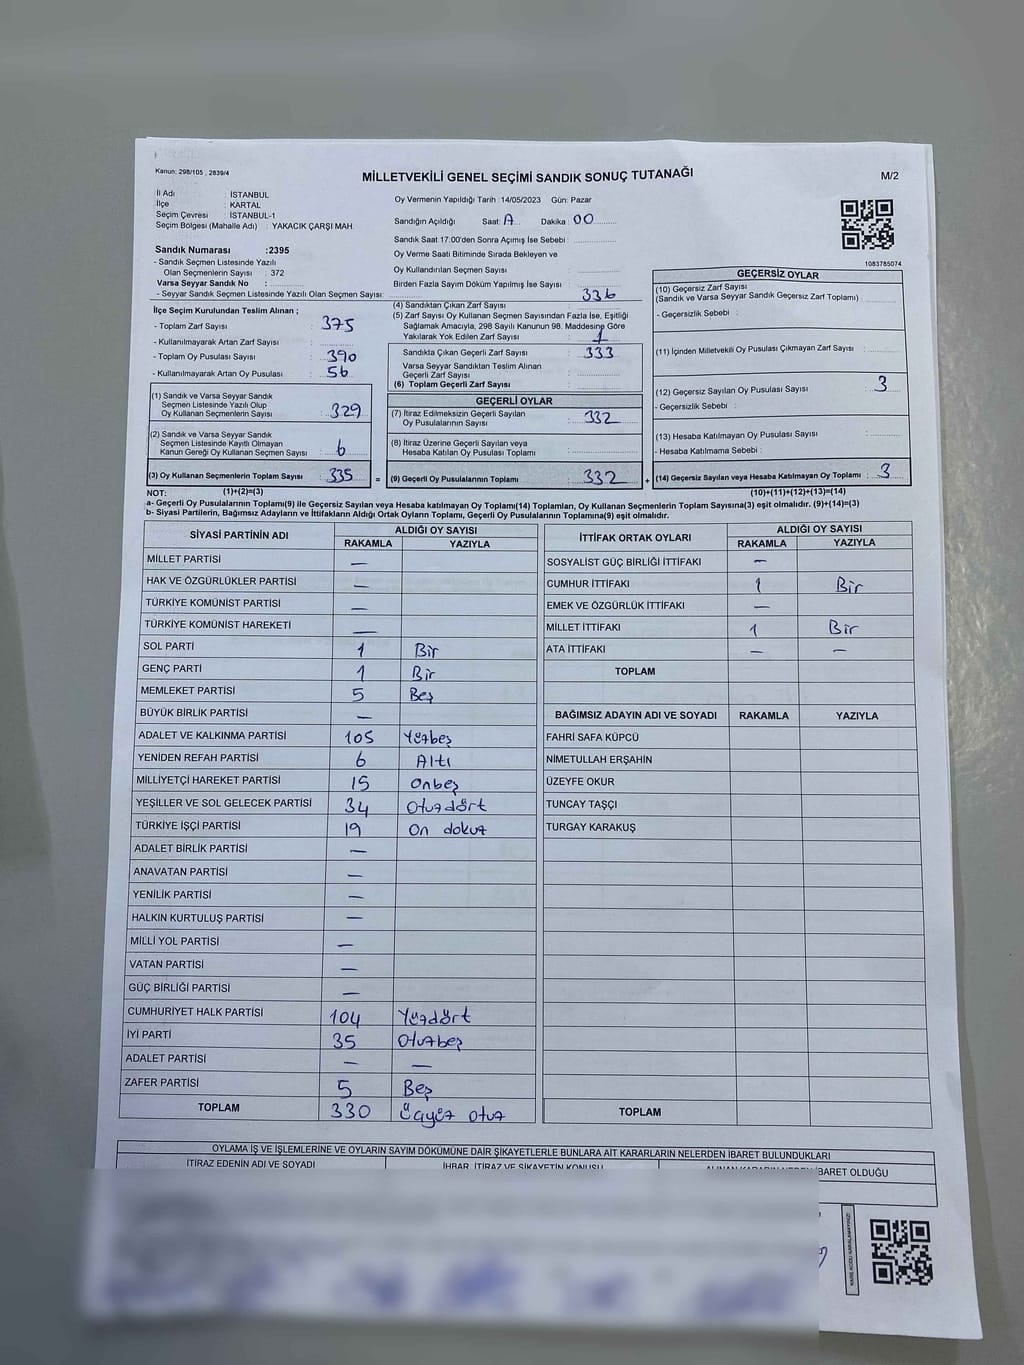 Kanun: 298/105 , 2839/4
MİLLETVEKİLİ GENEL SEÇİMİ SANDIK SONUÇ TUTANAĞI
M/2
İl Adı : İSTANBUL
İlçe : KARTAL
Seçim Çevresi : İSTANBUL-1
Seçim Bölgesi (Mahalle Adı) : YAKACIK ÇARŞI MAH.
Sandık Numarası :2395
- Sandık Seçmen Listesinde Yazılı
Olan Seçmenlerin Sayısı : 372
Varsa Seyyar Sandık No :
- Seyyar Sandık Seçmen Listesinde Yazılı Olan Seçmen Sayısı:
İlçe Seçim Kurulundan Teslim Alınan ;
- Toplam Zarf Sayısı : 375
- Kullanılmayarak Artan Zarf Sayısı :
- Toplam Oy Pusulası Sayısı : 390
- Kullanılmayarak Artan Oy Pusulası : 56
(1) Sandık ve Varsa Seyyar Sandık
Seçmen Listesinde Yazılı Olup
Oy Kullanan Seçmenlerin Sayısı : 329
(2) Sandık ve Varsa Seyyar Sandık
Seçmen Listesinde Kayıtlı Olmayan
Kanun Gereği Oy Kullanan Seçmen Sayısı : 6
(3) Oy Kullanan Seçmenlerin Toplam Sayısı : 335 =
Oy Vermenin Yapıldığı Tarih : 14/05/2023 Gün: Pazar
Sandığın Açıldığı Saat: A Dakika : 00
Sandık Saat 17:00'den Sonra Açımış İse Sebebi :
Oy Verme Saati Bitiminde Sırada Bekleyen ve
Oy Kullandırılan Seçmen Sayısı :
Birden Fazla Sayım Döküm Yapılmış İse Sayısı :
(4) Sandıktan Çıkan Zarf Sayısı : 336
(5) Zarf Sayısı Oy Kullanan Seçmen Sayısından Fazla İse, Eşitliği
Sağlamak Amacıyla, 298 Sayılı Kanunun 98. Maddesine Göre
Yakılarak Yok Edilen Zarf Sayısı : 1
Sandıkta Çıkan Geçerli Zarf Sayısı : 333
Varsa Seyyar Sandıktan Teslim Alınan
Geçerli Zarf Sayısı :
(6) Toplam Geçerli Zarf Sayısı :
GEÇERLİ OYLAR
(7) İtiraz Edilmeksizin Geçerli Sayılan
Oy Pusulalarının Sayısı : 332
(8) İtiraz Üzerine Geçerli Sayılan veya
Hesaba Katılan Oy Pusulası Toplamı :
(9) Geçerli Oy Pusulalarının Toplamı : 332 +
1083785074
GEÇERSİZ OYLAR
(10) Geçersiz Zarf Sayısı
(Sandık ve Varsa Seyyar Sandık Geçersiz Zarf Toplamı) :
- Geçersizlik Sebebi :
(11) İçinden Milletvekili Oy Pusulası Çıkmayan Zarf Sayısı :
(12) Geçersiz Sayılan Oy Pusulası Sayısı : 3
- Geçersizlik Sebebi :
(13) Hesaba Katılmayan Oy Pusulası Sayısı :
- Hesaba Katılmama Sebebi :
(14) Geçersiz Sayılan veya Hesaba Katılmayan Oy Toplamı : 3
NOT: (1)+(2)=(3) (10)+(11)+(12)+(13)=(14)
a- Geçerli Oy Pusulalarının Toplamı(9) ile Geçersiz Sayılan veya Hesaba katılmayan Oy Toplamı(14) Toplamları, Oy Kullanan Seçmenlerin Toplam Sayısına(3) eşit olmalıdır. (9)+(14)=(3)
b- Siyasi Partilerin, Bağımsız Adayların ve İttifakların Aldığı Ortak Oyların Toplamı, Geçerli Oy Pusulalarının Toplamına(9) eşit olmalıdır.
SİYASİ PARTİNİN ADI ALDIĞI OY SAYISI
RAKAMLA YAZIYLA
MİLLET PARTİSİ —
HAK VE ÖZGÜRLÜKLER PARTİSİ —
TÜRKİYE KOMÜNİST PARTİSİ —
TÜRKİYE KOMÜNİST HAREKETİ —
SOL PARTİ 1 Bir
GENÇ PARTİ 1 Bir
MEMLEKET PARTİSİ 5 Beş
BÜYÜK BİRLİK PARTİSİ —
ADALET VE KALKINMA PARTİSİ 105 Yüzbeş
YENİDEN REFAH PARTİSİ 6 Altı
MİLLİYETÇİ HAREKET PARTİSİ 15 Onbeş
YEŞİLLER VE SOL GELECEK PARTİSİ 34 Otuzdört
TÜRKİYE İŞÇİ PARTİSİ 19 On dokuz
ADALET BİRLİK PARTİSİ —
ANAVATAN PARTİSİ —
YENİLİK PARTİSİ —
HALKIN KURTULUŞ PARTİSİ —
MİLLİ YOL PARTİSİ —
VATAN PARTİSİ —
GÜÇ BİRLİĞİ PARTİSİ —
CUMHURİYET HALK PARTİSİ 104 Yüzdört
İYİ PARTİ 35 Otuzbeş
ADALET PARTİSİ — —
ZAFER PARTİSİ 5 Beş
TOPLAM 330 Üçyüz otuz
İTTİFAK ORTAK OYLARI ALDIĞI OY SAYISI
RAKAMLA YAZIYLA
SOSYALİST GÜÇ BİRLİĞİ İTTİFAKI —
CUMHUR İTTİFAKI 1 Bir
EMEK VE ÖZGÜRLÜK İTTİFAKI —
MİLLET İTTİFAKI 1 Bir
ATA İTTİFAKI — —
TOPLAM
BAĞIMSIZ ADAYIN ADI VE SOYADI RAKAMLA YAZIYLA
FAHRİ SAFA KÜPCÜ
NİMETULLAH ERŞAHİN
ÜZEYFE OKUR
TUNCAY TAŞÇI
TURGAY KARAKUŞ
TOPLAM
OYLAMA İŞ VE İŞLEMLERİNE VE OYLARIN SAYIM DÖKÜMÜNE DAİR ŞİKAYETLERLE BUNLARA AİT KARARLARIN NELERDEN İBARET BULUNDUKLARI
İTİRAZ EDENİN ADI VE SOYADI İHBAR, İTİRAZ VE ŞİKAYETİN KONUSU İBARET OLDUĞU